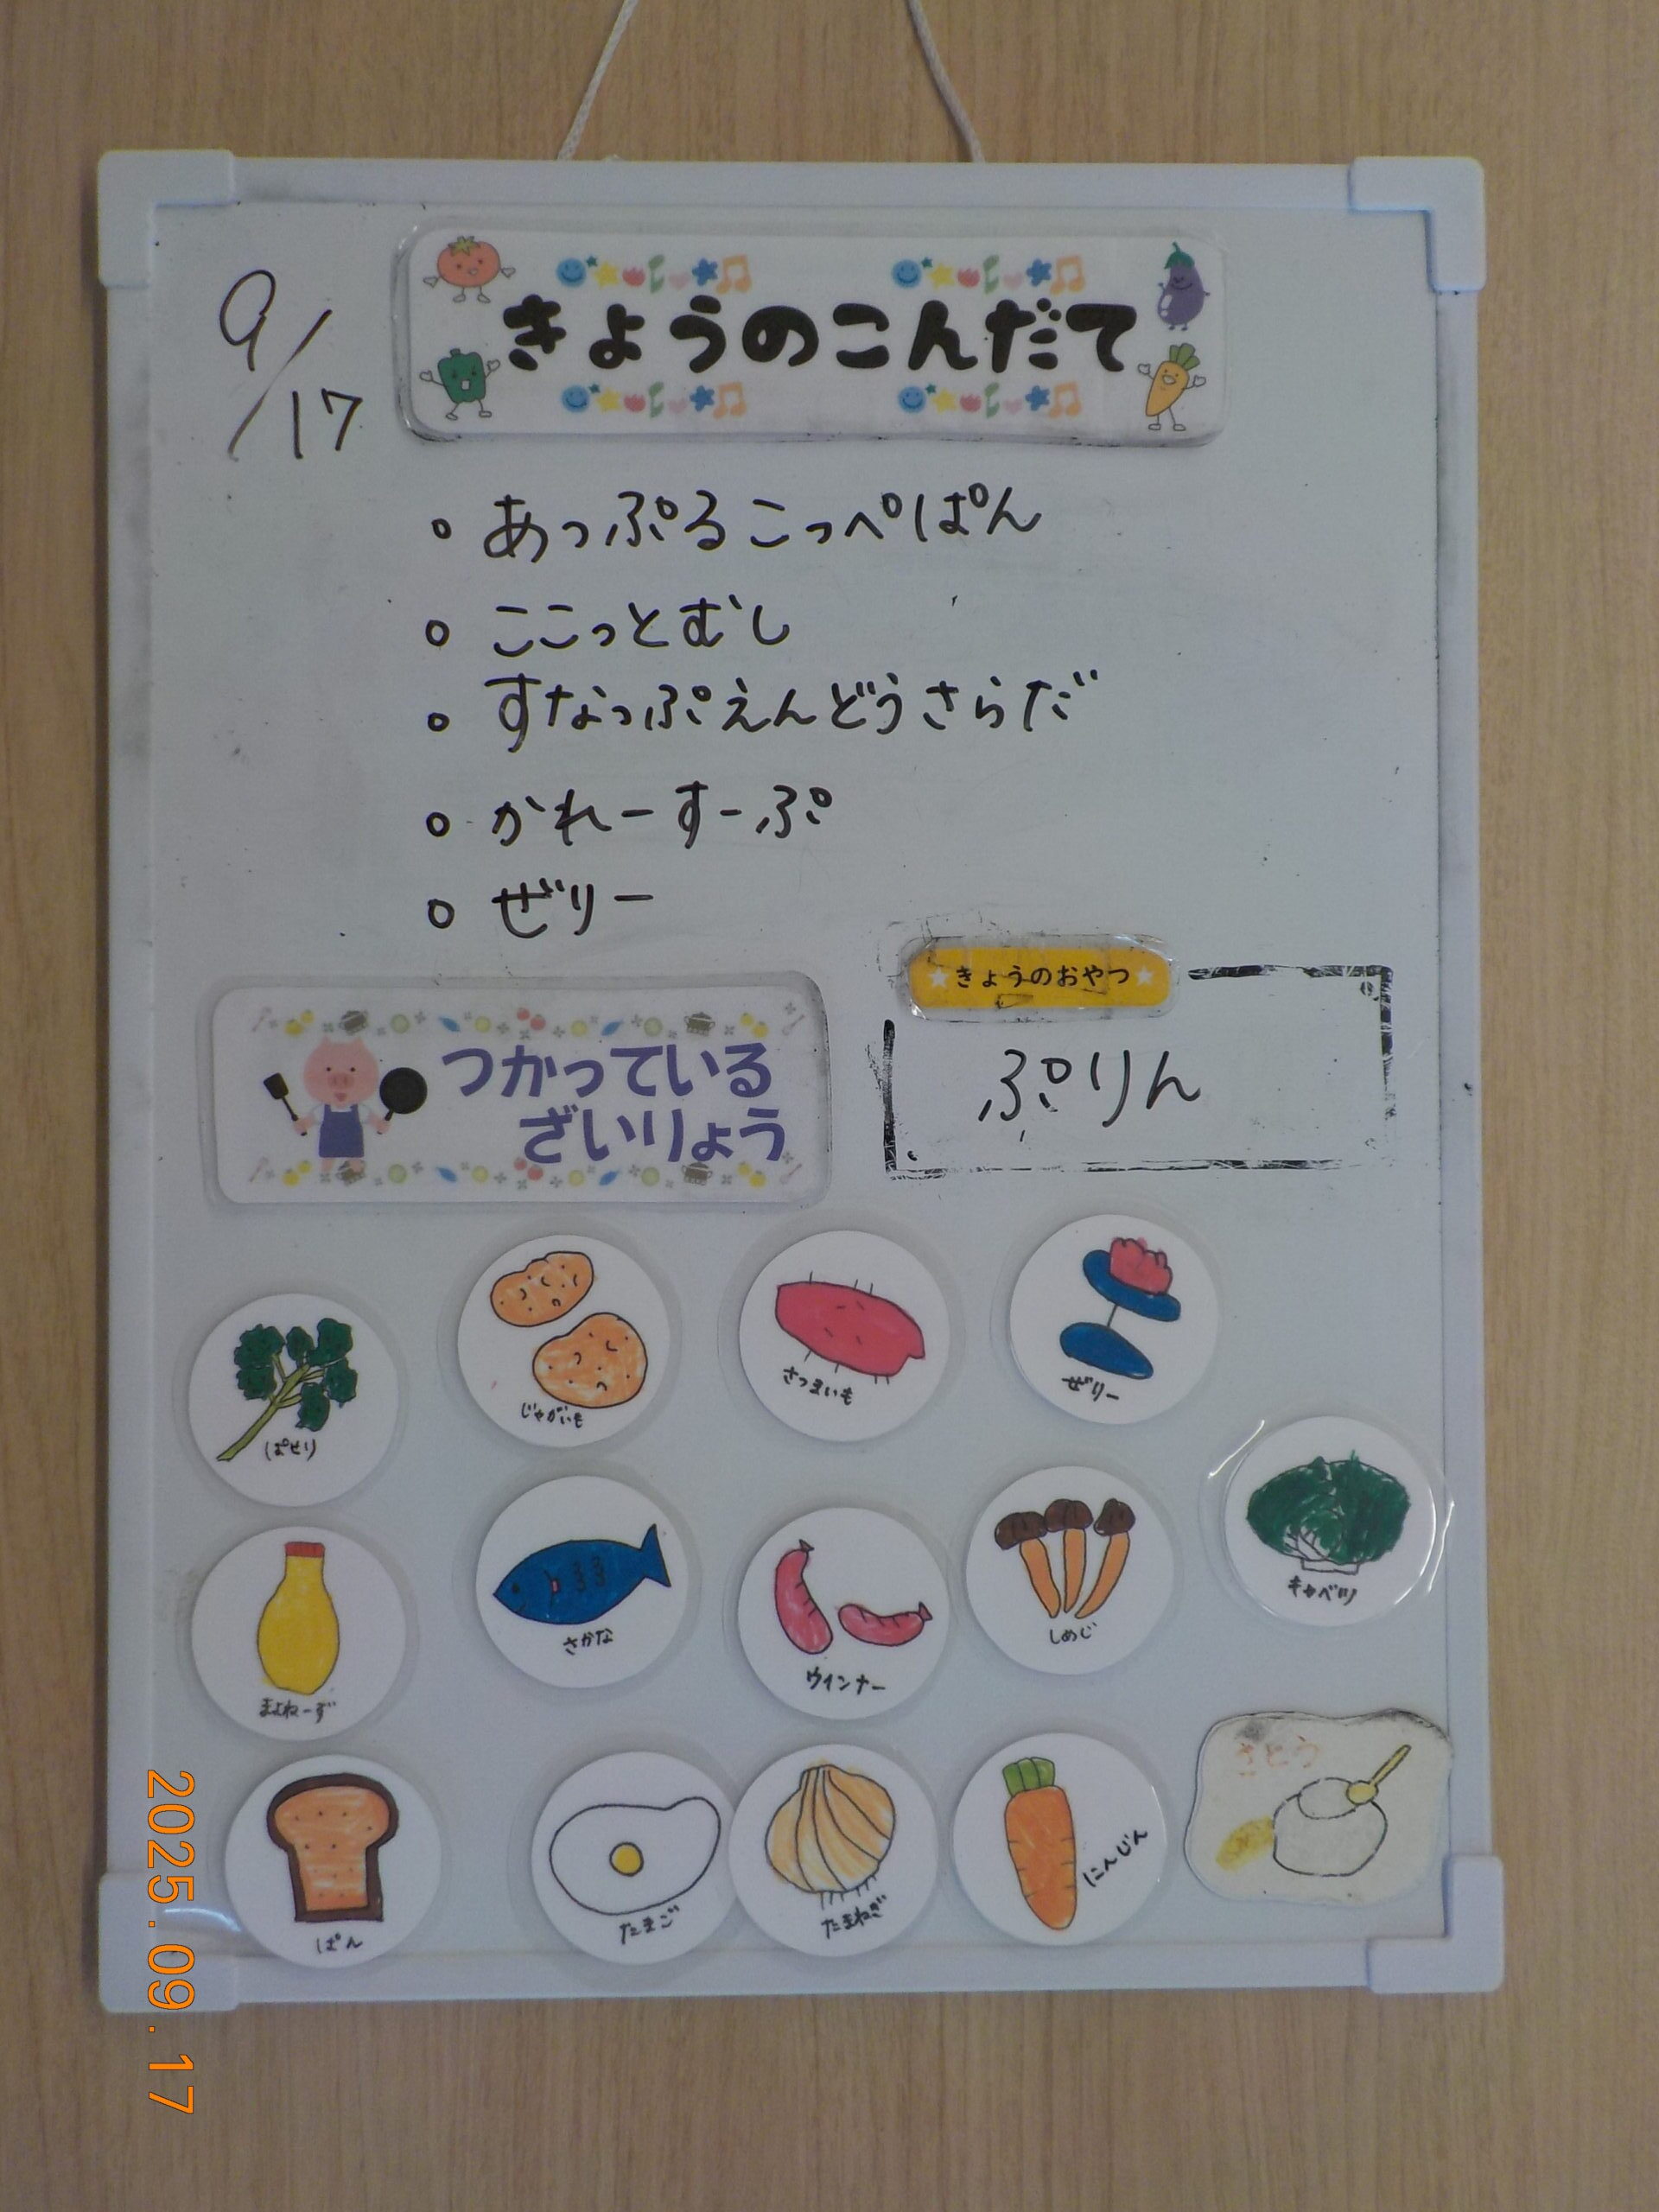 9/17
きょうのこんだて
。あっぷるこっぺぱん
。ここっとむし
。すなっぷえんどうさらだ
。かれーすーぷ
。ぜりー
きょうのおやつ
ぷりん
つかっている
ざいりょう
ぱせり
じゃがいも
さつまいも
ぜりー
キャベツ
まよねーず
さかな
ウインナー
しめじ
ぱん
たまご
たまねぎ
にんじん
さとう
2025.09.17